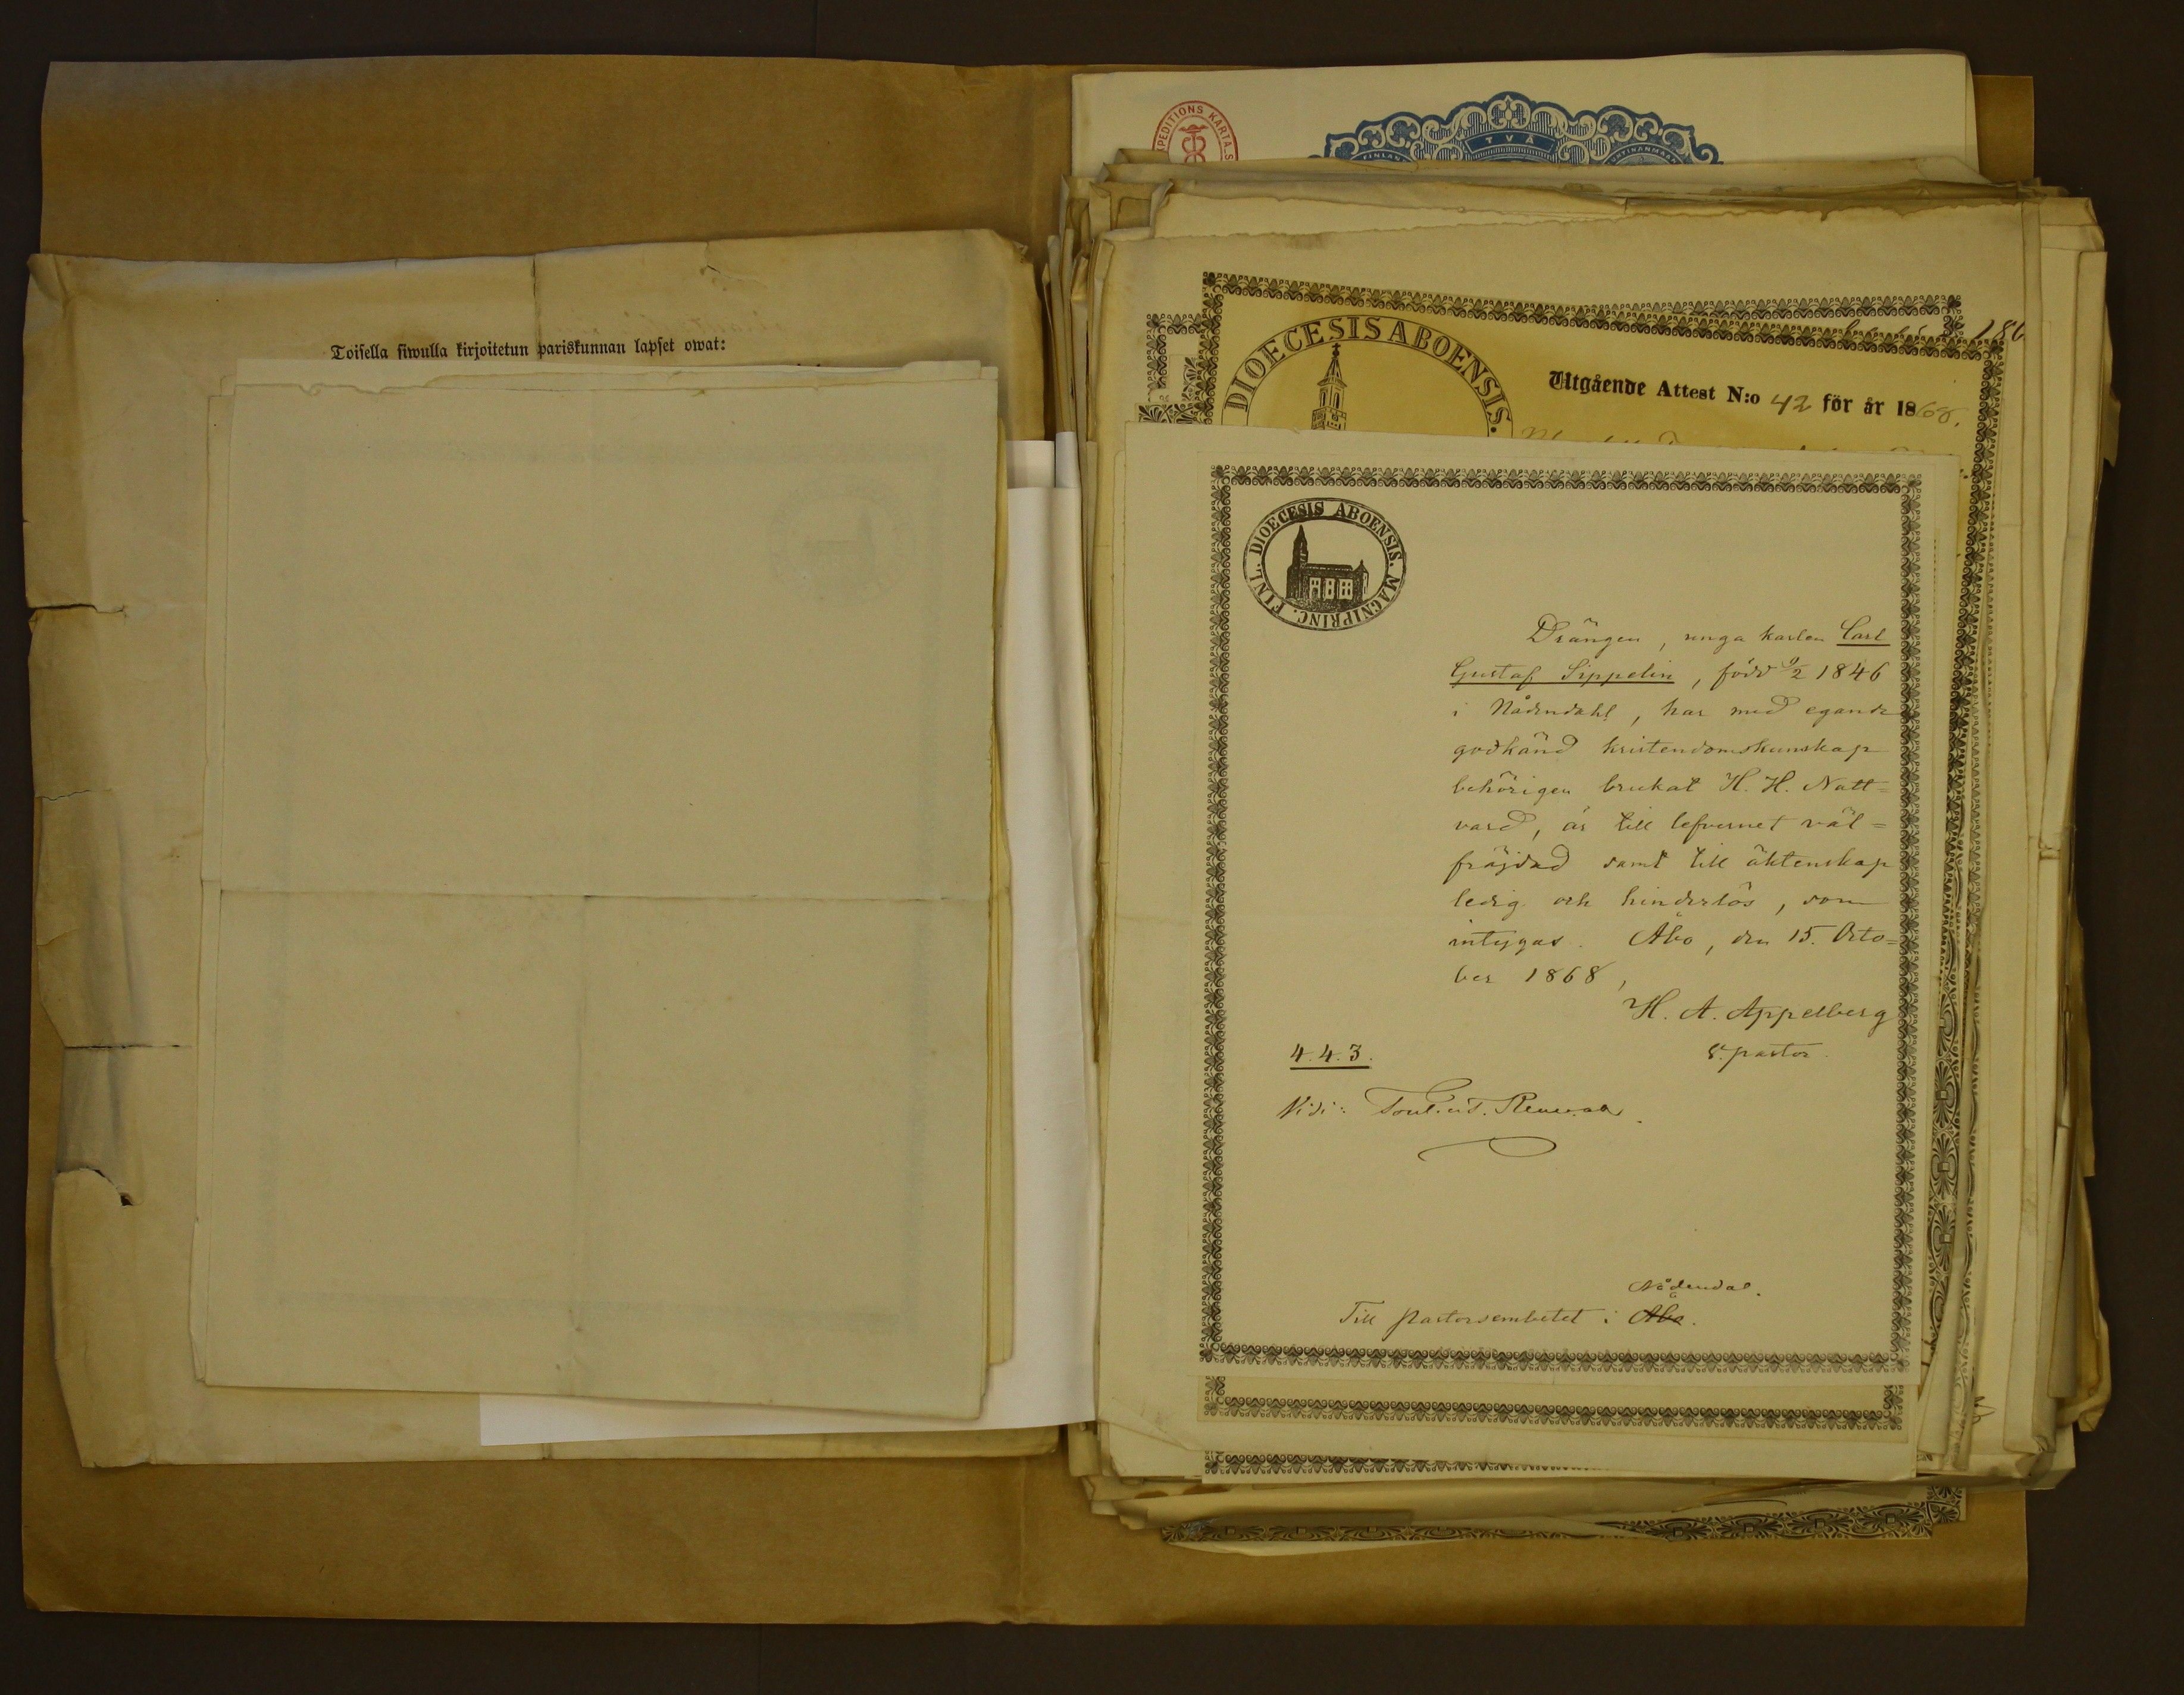 Toisella siwulla kirjoitetun pariskunnan lapset owat:
EXPEDITIONS KARTA.S
TVÅ
FINLAN
DIOECESIS ABOENSIS.
186
Utgående Attest N:o 42 för år 1868.
FINL. DIOECESIS ABOENSIS. MAGNIPRINC.
Drängen, unga karlen Carl
Gustaf Sippelin, född 9/2 1846
i Nådendahl, har med egande
godkänd kristendomskunskap
behörigen brukat H. H. Natt=
vard, är till lefvernet väl=
fräjdad samt till äktenskap
ledig och hinderlös, som
intygas. Åbo, den 15. Octo=
ber 1868,
H. A. Appelberg
v. pastor.
4.4.3.
Vidi:
Nådendal.
Till Pastorsembetet i Åbo.